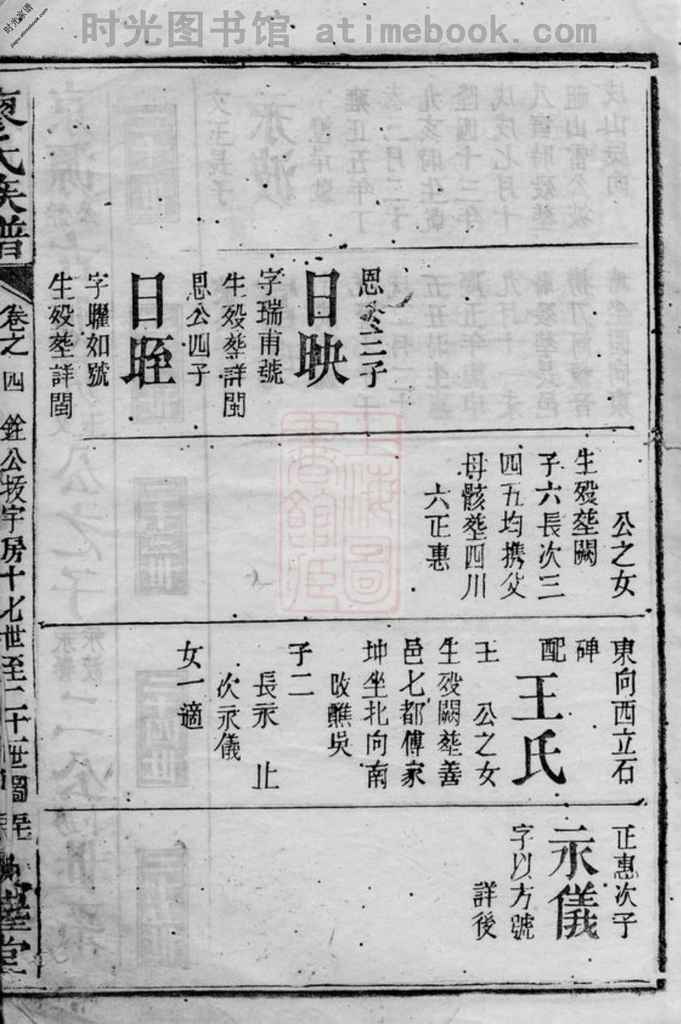 时光图书馆 atimebook.com
恩公三子
日映
字瑞甫號
生殁塟詳閩
恩公四子
日晊
字躍如號
生殁塟詳閩
公之女
生殁塟闕
子六長次三
四五均携父
母骸塟四川
六正惠
東向西立石
碑
配
王氏
王 公之女
生殁闕塟善
邑七都傅家
坤坐北向南
子二
長永 止
次永儀
女一適
正惠次子
永儀
字以方號
詳後
廖氏族譜
卷之四
房十七世至二十世圖
堂